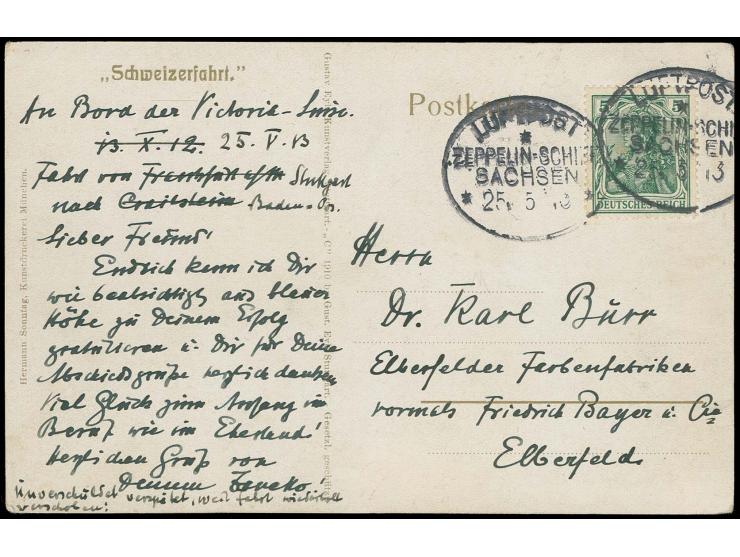 „Schweizerfahrt."
An Bord der Victoria-Luise.
13. X. 12. 25. V. 13
Fahrt von Frankfurt a/M Stuttgart
nach Crailsheim Baden-Os.
Lieber Freund!
Endlich kann ich Dir
wie beabsichtigt aus blauer
Höhe zu Deinem Erfolg
gratulieren u. Dir für Deine
Abschiedsgrüße herzlich danken.
Viel Glück zum Anfang im
Beruf wie im Ehestand!
Herzlichen Gruß von
Deinem
Unverschuldet verspätet, weil Fahrt wiederholt
verschoben!
Hermann Sonntag, Kunstdruckerei München.
1910 Gust. Stuttgart. Gesetzl. geschützt
Postkarte
LUFTPOST
ZEPPELIN-SCHIFF
SACHSEN
* 25. 5. 13
LUFTPOST
ZEPPELIN-SCHI
SACHSEN
5 13
5
DEUTSCHES REICH
Herrn
Dr. Karl Bürr
Elberfelder Farbenfabriken
vormals Friedrich Bayer u. Cie
Elberfeld